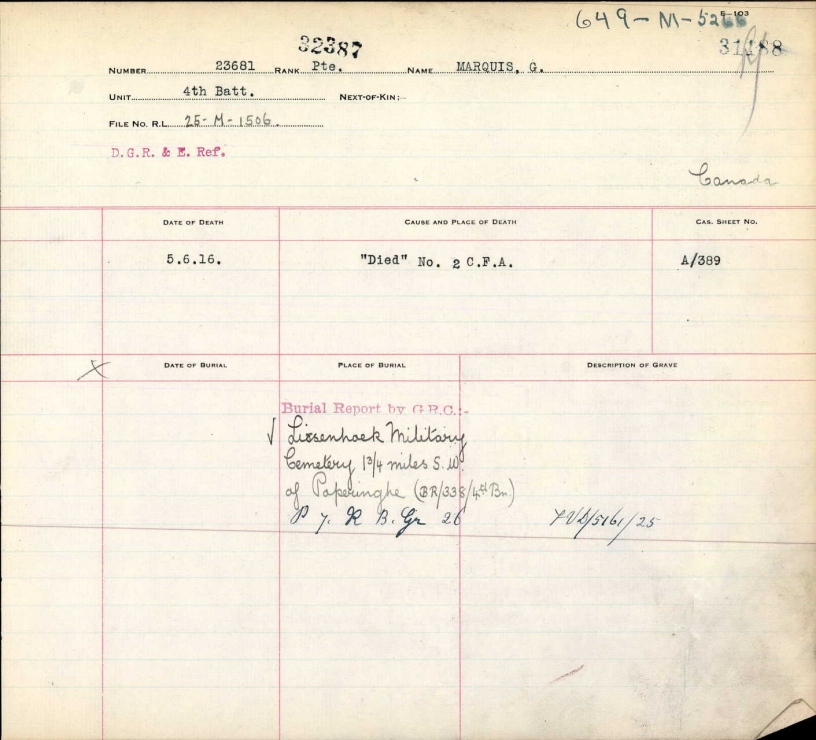 E-103
649-M-5266
32387
31188
NUMBER 23681 RANK Pte. NAME MARQUIS, G.
UNIT 4th Batt. NEXT-OF-KIN:-
FILE NO. R.L. 25-M-1506.
D.G.R. & E. Ref.
Canada
DATE OF DEATH CAUSE AND PLACE OF DEATH CAS. SHEET NO.
5.6.16. "Died" No. 2 C.F.A. A/389
X DATE OF BURIAL PLACE OF BURIAL DESCRIPTION OF GRAVE
Burial Report by G.R.C.:-
√ Lissenhoek Military
Cemetery 1 3/4 miles S.W.
of Poperinghe (BR/338/4th Bn)
P 7. R B. Gr 26 /5161/25